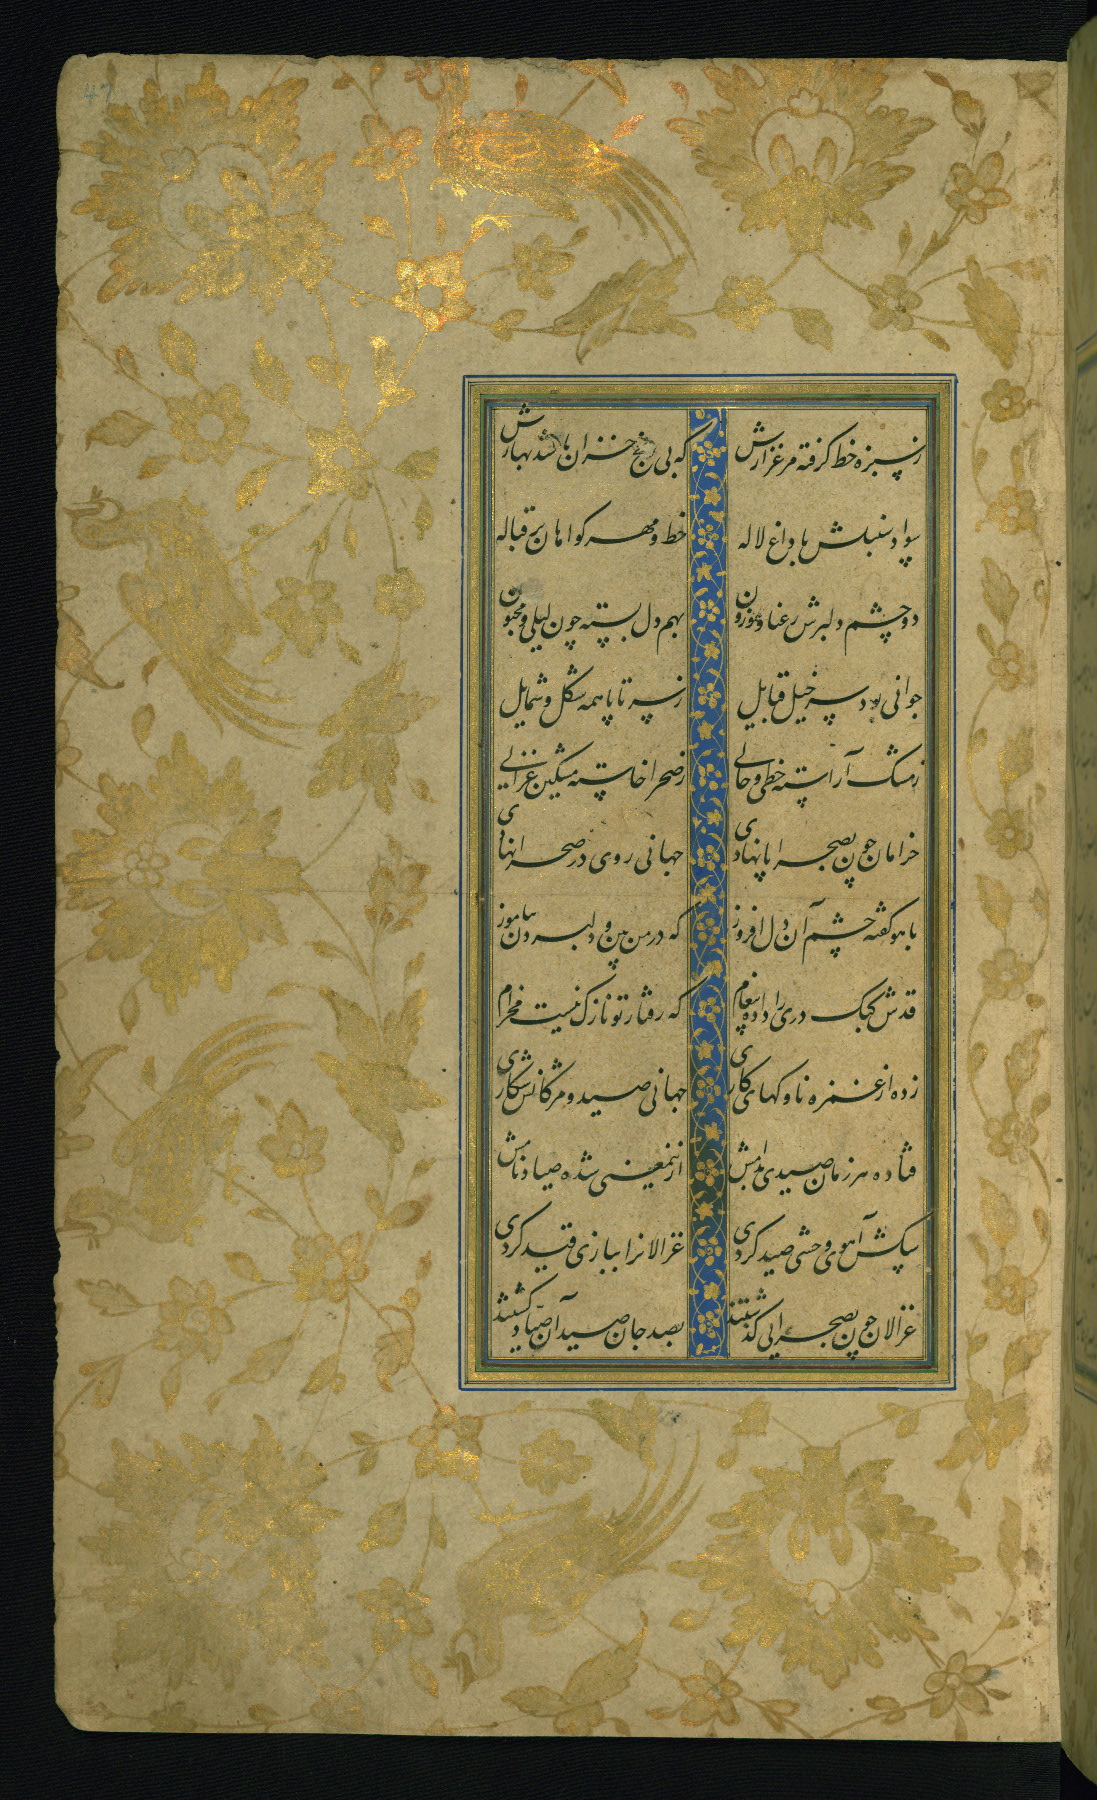 ز سبزه خط گرفته مرغزارش که بی رنج خزان باشد بهارش
سواد سنبلش با داغ لاله خط و مهر گواهان بر قباله
دو چشم دلبرش رعنا و موزون بهم دل بسته چون لیلی و مجنون
جوانی بود سر خیل قبایل ز سر تا پا همه شکل و شمایل
ز مشک آراسته خطی و خالی ز صحرا خاسته مشکین غزالی
خرامان چون بصحرا پا نهادی جهانی روی در صحرا نهادی
باهو گفته چشم آن دل افروز که در من بین و دلبردن بیاموز
قدش کبک دری را داده پیغام که رفتار تو نازک نیست مخرام
زده از غمزه ناوکهای کاری جهانی صید و مژگانش شکاری
فتاده هر زمان صیدی بدامش ازینمعنی شده صیاد نامش
سکش آهوی وحشی صید کردی غزالانرا ببازی قید کردی
غزالان چون بصحرایی گذشتند بصد جان صید آن صیاد گشتند